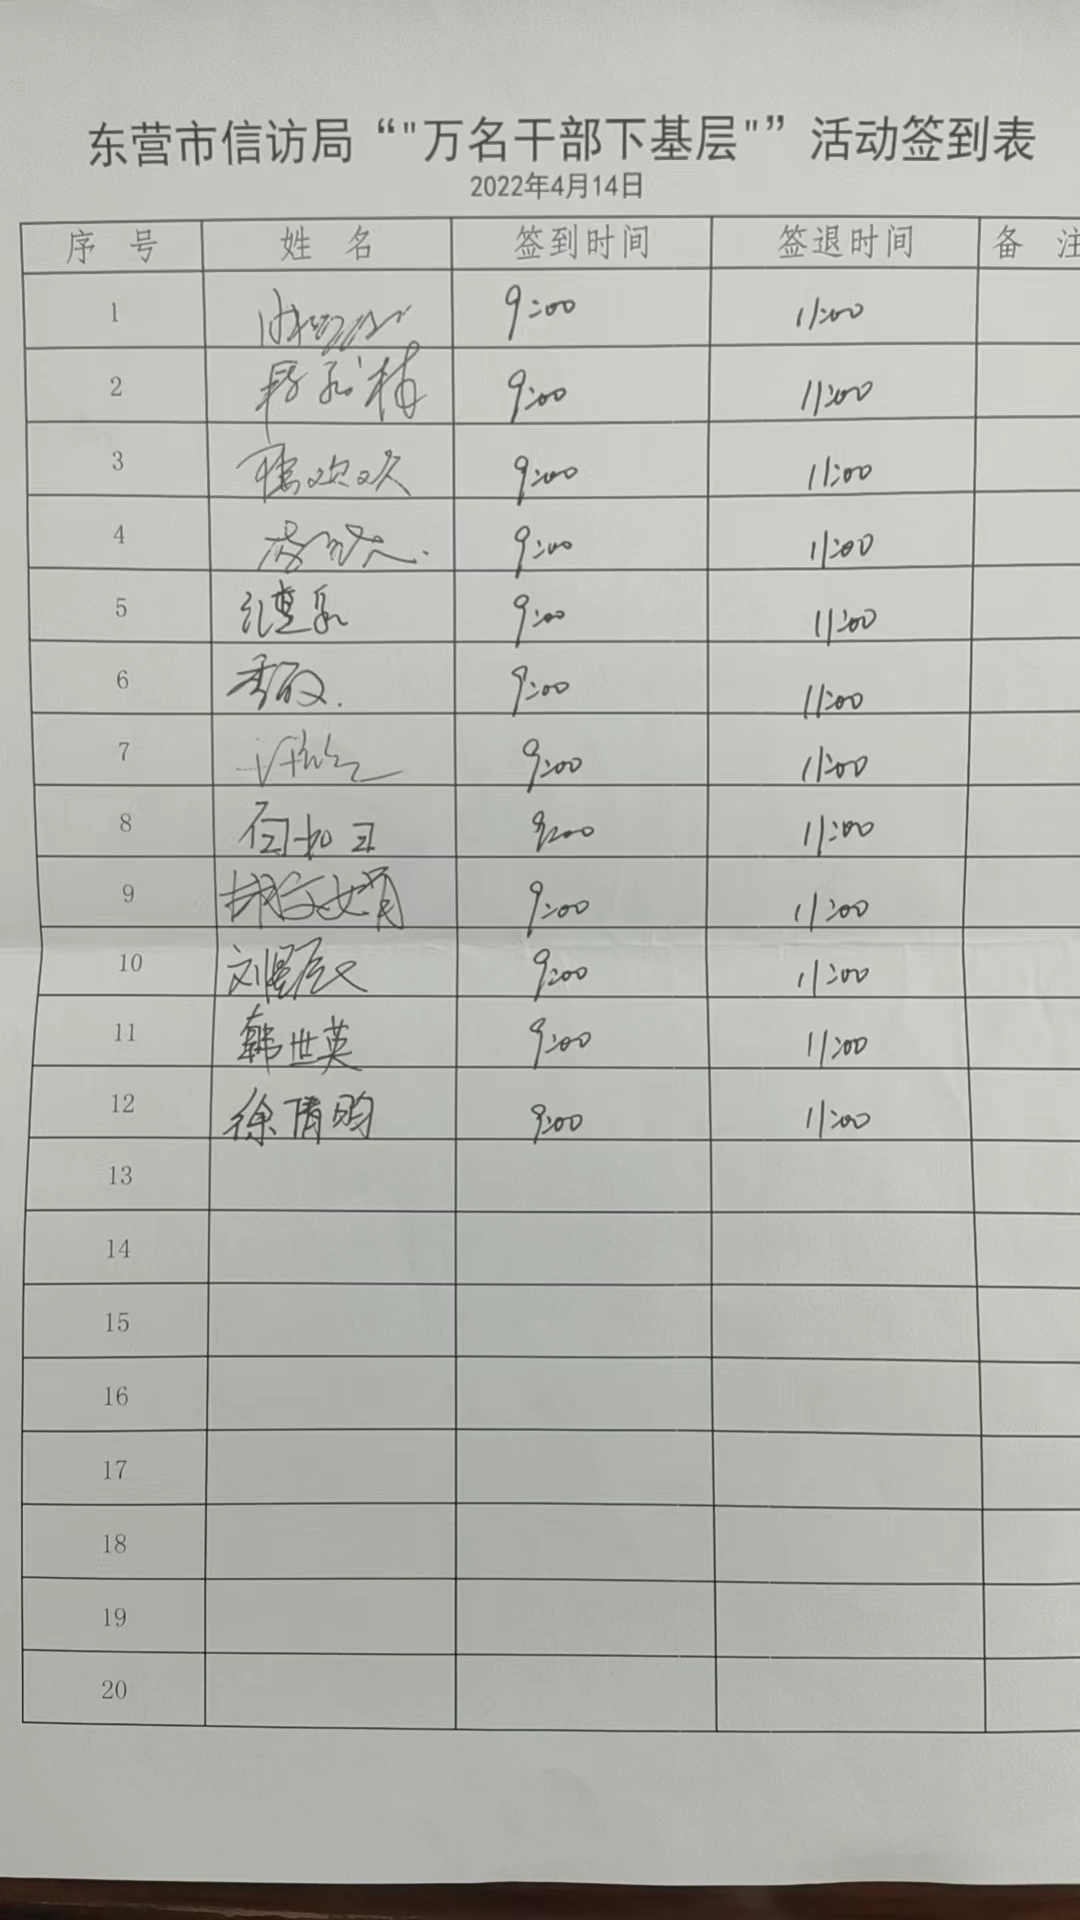 东营市信访局“"万名干部下基层"”活动签到表
2022年4月14日
序 号 姓 名 签到时间 签退时间 备 注
1 9:00 11:00
2 9:00 11:00
3 欢欢 9:00 11:00
4 9:00 11:00
5 9:00 11:00
6 9:00 11:00
7 9:00 11:00
8 9:00 11:00
9 胡文娟 9:00 11:00
10 9:00 11:00
11 韩世英 9:00 11:00
12 徐倩昀 9:00 11:00
13
14
15
16
17
18
19
20